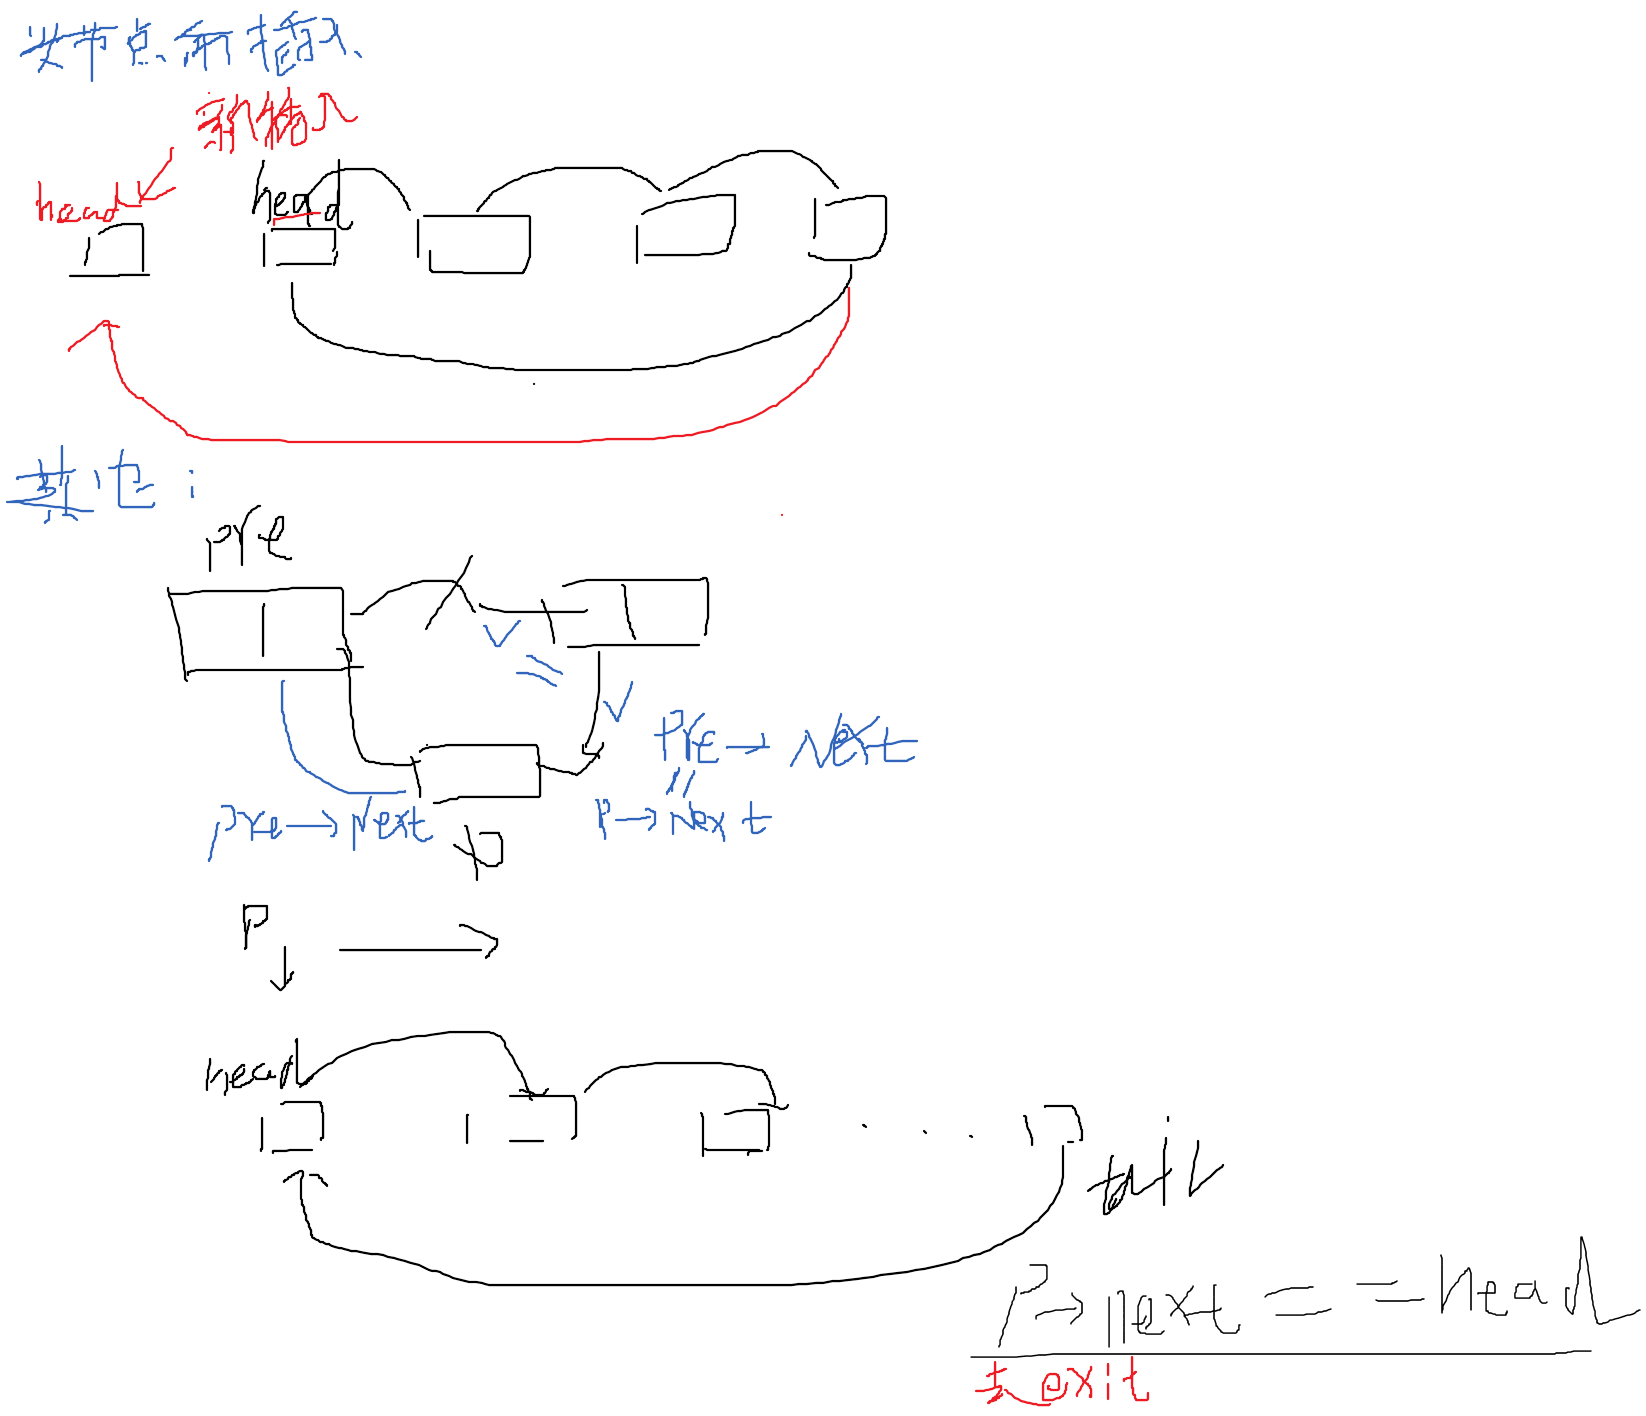 头节点前插入
新插入
head
head
其他:
pre
pre→next
p→next
pre→next
p
P
head
tail
P→next==head
去exit